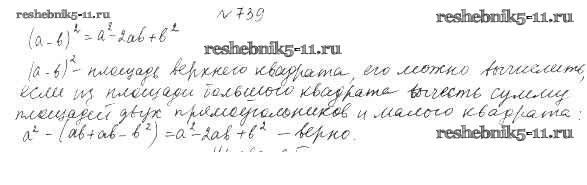 reshebnik5-11.ru № 739
(a-в)² = a² - 2aв + в²
reshebnik5-11.ru
(a-в)² - площадь верхнего квадрата, его можно вычислить,
если из площади большого квадрата вычесть сумму
площадей двух прямоугольников и малого квадрата:
a² - (aв + aв - в²) = a² - 2aв + в² - верно.
reshebnik5-11.ru reshebnik5-11.ru